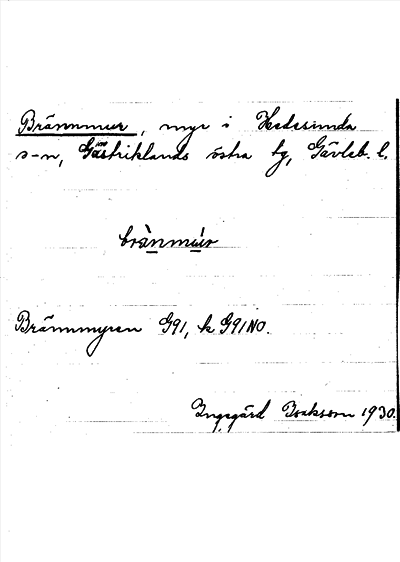 Brännmur, myr i Hedesunda
s-n, Gästriklands östra tg, Gävleb. l.
brànmúr
Brännmyren G91, k G91 NO.
Ingegärd Isaksson 1930.